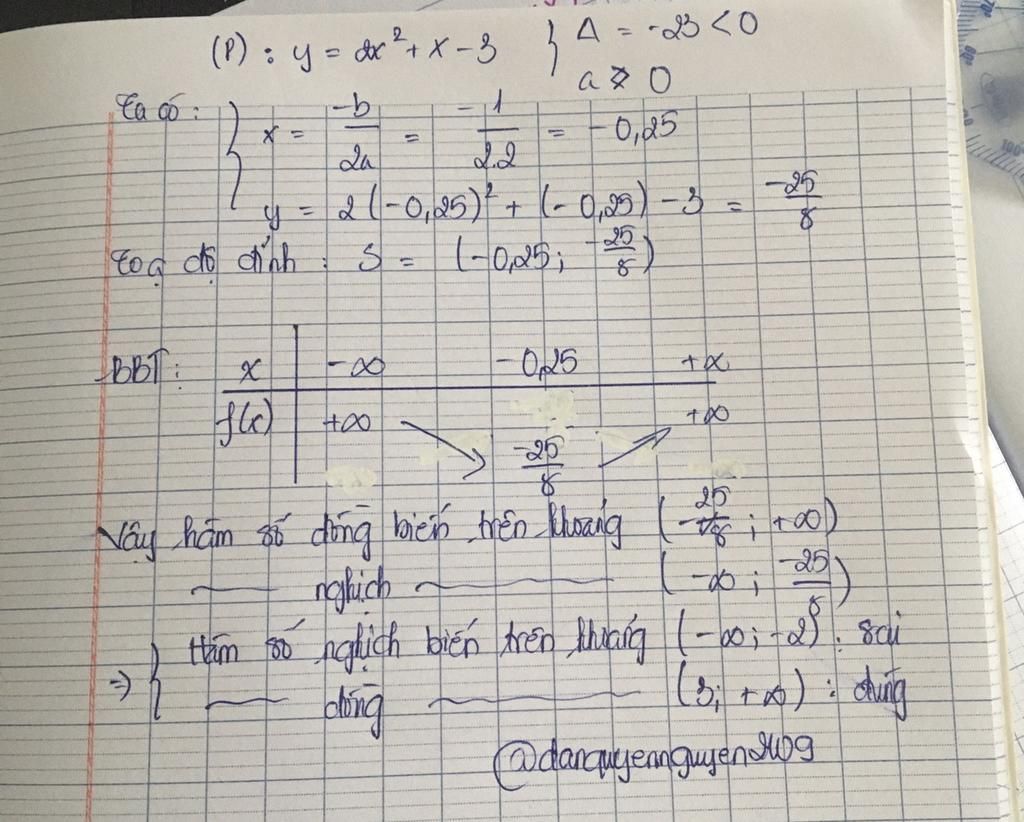 (P) : y = 2x² + x - 3 } Δ = -23 < 0
a > 0
Ta có : { x = -b/2a = -1/2.2 = -0,25
y = 2(-0,25)² + (-0,25) - 3 = -25/8
Toạ độ đỉnh : S = (-0,25; -25/8)
BBT : x | -∞ -0,25 +∞
f(x) | +∞ -25/8 +∞
Vậy hàm số đồng biến trên khoảng (-25/8 ; +∞)
—— nghịch —— (-∞ ; -25/8)
=> { Hàm số nghịch biến trên khoảng (-∞; -2) : sai
—— đồng —— (3; +∞) : đúng
@danquyennguyen2409